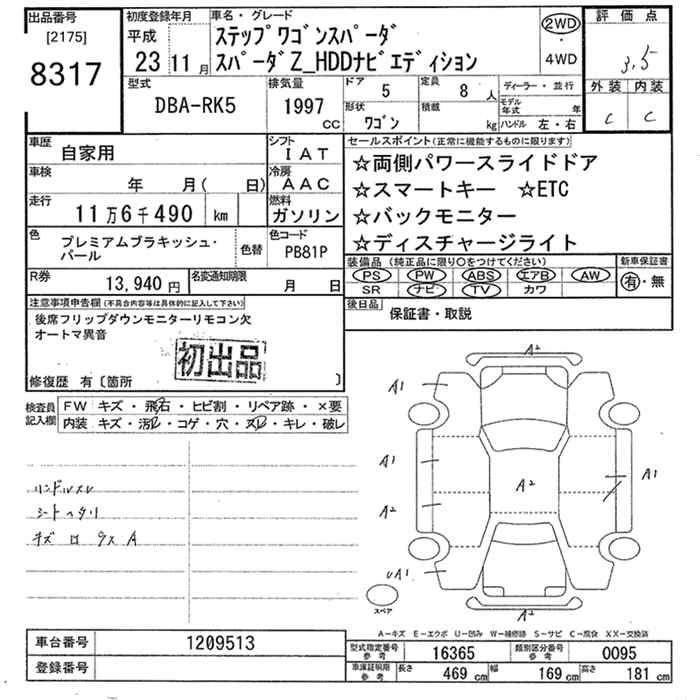 出品番号
[2175]
8317
初度登録年月
平成
23 11 月
車名・グレード
ステップワゴンスパーダ
スパーダZ_HDDナビエディション
2WD
・
4WD
評価点
3.5
外装 内装
C C
型式
DBA-RK5
排気量
1997
CC
ドア 5
定員 8 人
形状 ワゴン
積載 kg
ディーラー・並行
モデル年式 年
ハンドル 左・右
車歴 自家用
シフト IAT
車検 年 月( 日)
冷房 AAC
走行 11万6千490 km
燃料 ガソリン
色 プレミアムブラキッシュ・パール
色替
色コード PB81P
R券 13,940 円
名変通知期限 月 日
セールスポイント(正常に機能するものに限ります)
☆両側パワースライドドア
☆スマートキー ☆ETC
☆バックモニター
☆ディスチャージライト
装備品(純正品に限り○をつけてください)
PS PW ABS エアB AW
SR ナビ TV カワ
新車保証書
有・無
後日品 保証書・取説
注意事項申告欄(不具合内容等は具体的に記入して下さい)
後席フリップダウンモニターリモコン欠
オートマ異音
初出品
修復歴 有〔箇所 〕
検査員記入欄
FW キズ・飛石・ヒビ割・リペア跡・×要
内装 キズ・汚レ・コゲ・穴・スレ・キレ・破レ
ハンドルスレ
シートヘタリ
キズ
A2
A1
A1
A2
A2
A1
A1
A2
スペア
A-キズ E-エクボ U-凹み W-補修跡 S-サビ C-腐食 XX-交換済
車台番号 1209513
登録番号
型式指定番号参考 16365
類別区分番号参考 0095
車庫証明用参考 長さ 469 cm 幅 169 cm 高さ 181 cm